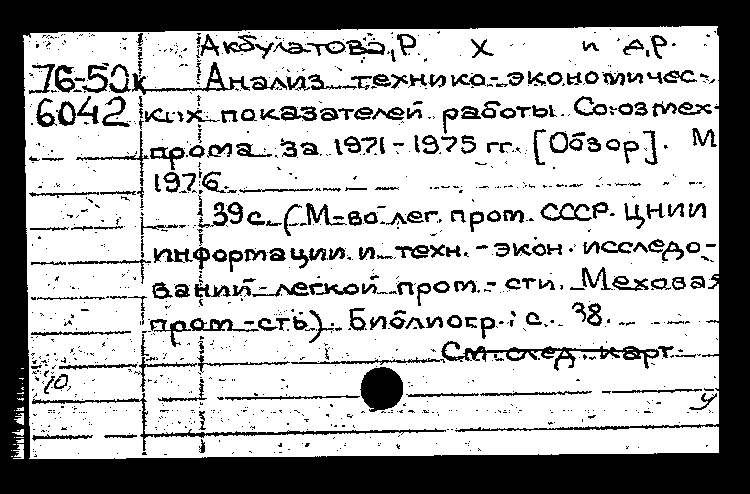 Акбулатова, Р. Х и др.
76-50к Анализ технико-экономичес-
6042 ких показателей работы Союзмех-
прома за 1971-1975 гг. [Обзор]. М
1976.
39 с. (М-во лег. пром. СССР. ЦНИИ
информации и техн.-экон. исследо-
ваний легкой пром-сти. Меховая
пром-сть). Библиогр.: с. 38.
См. след. карт.
10.
у